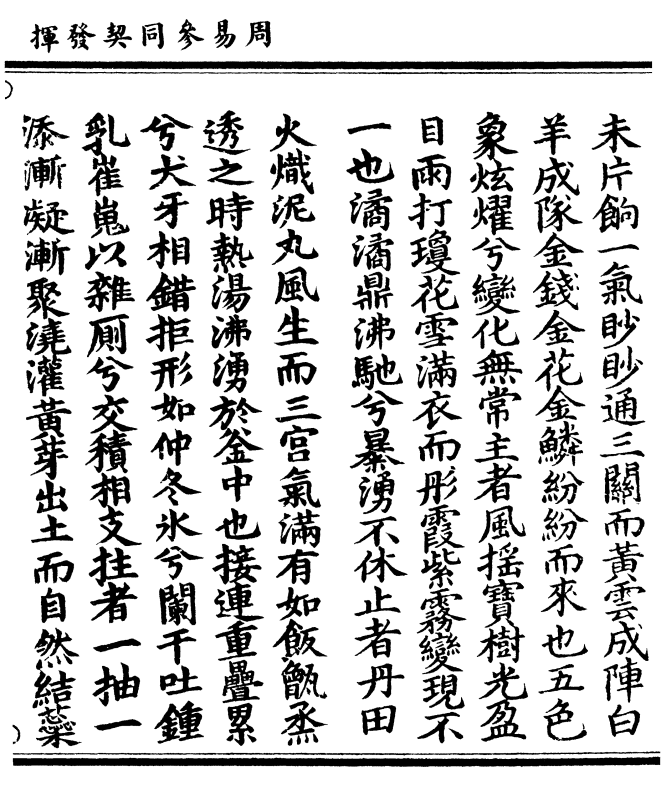 周易參同契發揮
未片餉一氣眇眇通三關而黃雲成陣白
羊成隊金錢金花金鱗紛紛而來也五色
象炫燿兮變化無常主者風搖寶樹光盈
目雨打瓊花雪滿衣而彤霞紫霧變現不
一也潏潏鼎沸馳兮暴湧不休止者丹田
火熾泥丸風生而三宮氣滿有如飯甑烝
透之時熱湯沸湧於釜中也接連重疊累
兮犬牙相錯拒形如仲冬氷兮闌干吐鍾
乳崔嵬以雜厠兮交積相支拄者一抽一
添漸凝漸聚澆灌黃芽出土而自然結蘂